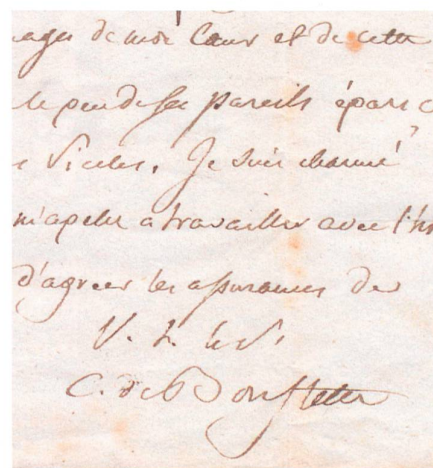 de mon Cœur et de cette
le peu de ses pareils épars
Siecles. Je suis charmé
m'apelle a travailler avec l'h
d'agreer les assurances de
V. t. h. s.
C. de Bonstetten